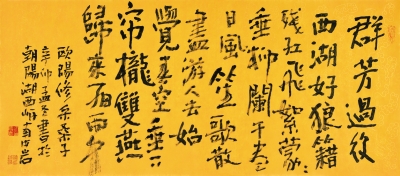 群芳過後
西湖好狼籍
残红飛絮蒙〻
垂柳闌干尽
日風笙歌散
盡游人去始
覺春空垂下
帘櫳雙燕
歸来细雨中
歐陽修采桑子
辛卯孟冬書於
朝陽湖西岸